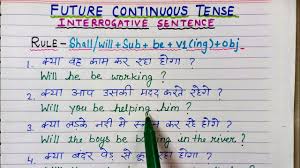 FUTURE CONTINUOUS TENSE
INTERROGATIVE SENTENCE
RULE- Shall/will + Sub + be + V1(ing) + obj
1. क्या वह काम कर रहा होगा ?
Will he be working ?
2. क्या आप उसकी मदद करते रहेंगे ?
Will you be helping him ?
3. क्या लड़के नदी में कर रहे होंगे ?
Will the boys be in the river ?
क्या बंदर पेड़ से रहा